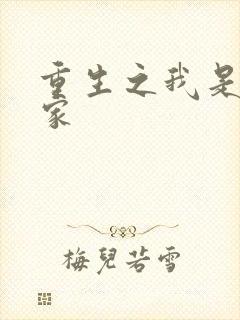 重生之我是
家
梅兒若雪